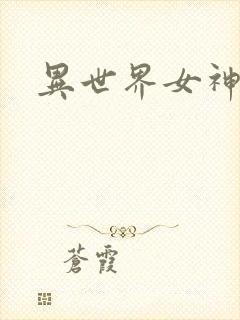 異世界女神
蒼霞